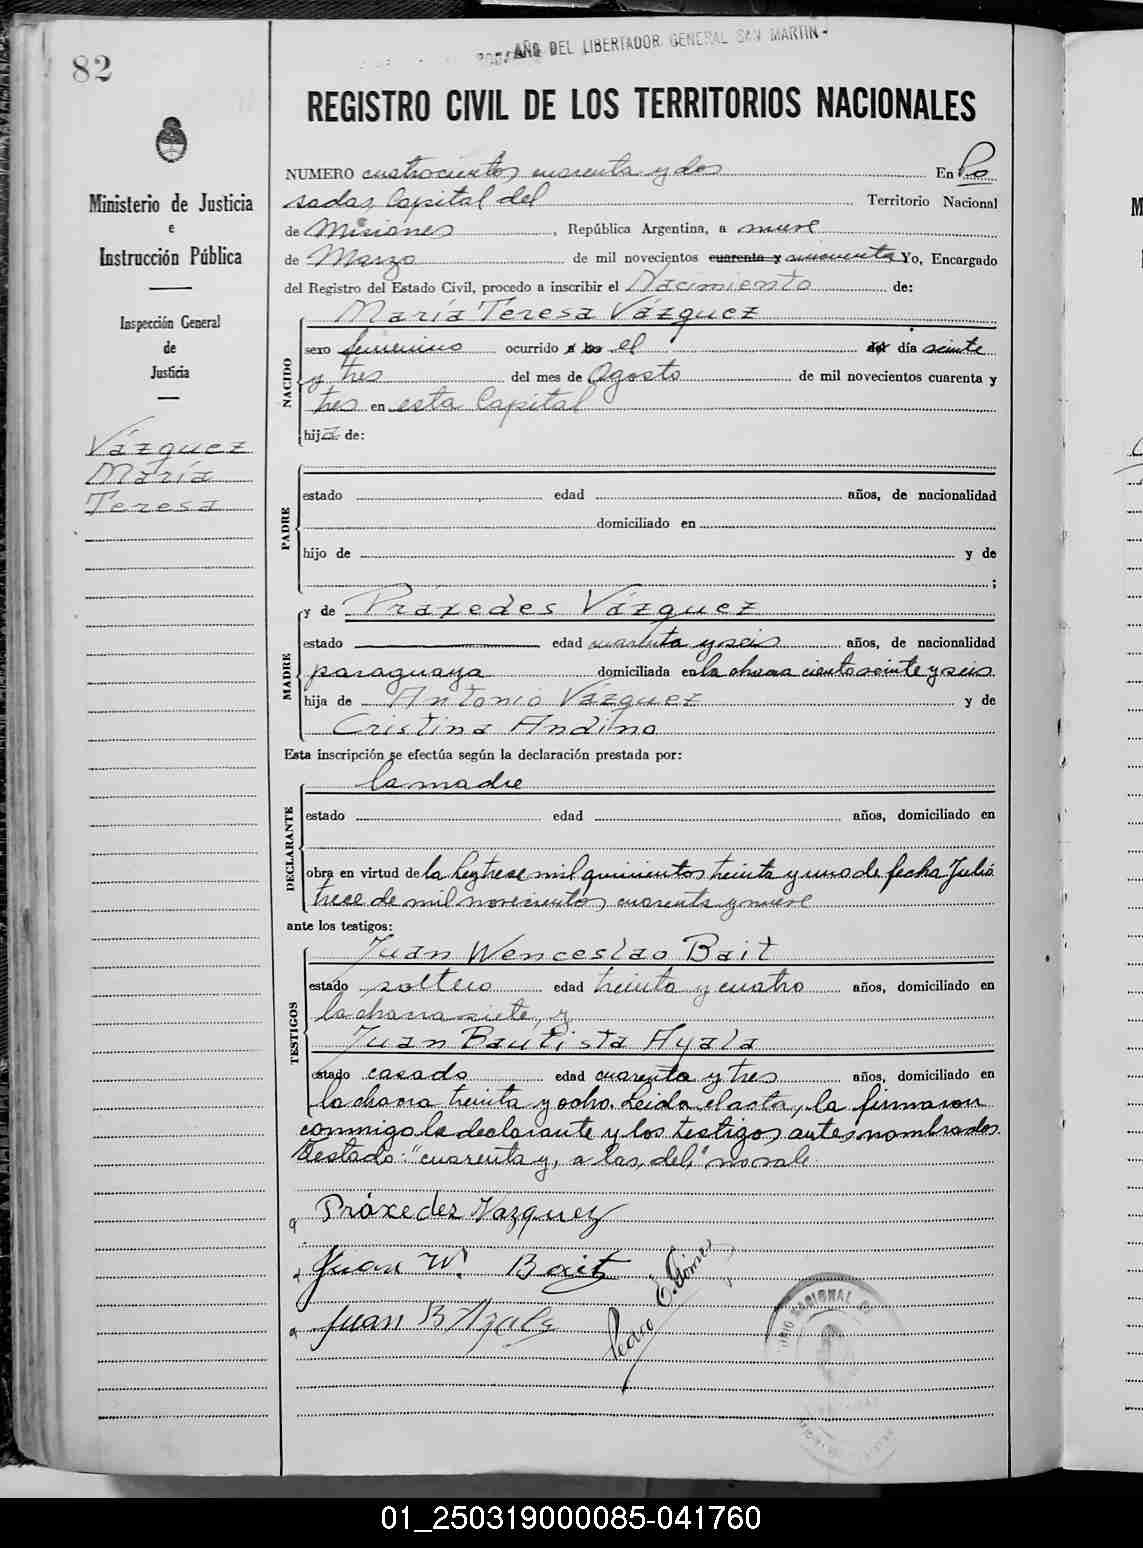 AÑO DEL LIBERTADOR GENERAL SAN MARTIN
82
REGISTRO CIVIL DE LOS TERRITORIOS NACIONALES
Ministerio de Justicia
e
Instrucción Pública
Inspección General
de
Justicia
Vázquez
María
Teresa
NUMERO cuatrocientos cuarenta y dos En Po
sadas, Capital del Territorio Nacional
de Misiones, República Argentina, a nueve
de Marzo de mil novecientos cuarenta y cincuenta Yo, Encargado
del Registro del Estado Civil, procedo a inscribir el Nacimiento de:
NACIDO
María Teresa Vázquez
sexo femenino ocurrido a las el del día veinte
y tres del mes de Agosto de mil novecientos cuarenta y
tres en esta Capital
hija de:
PADRE
estado edad años, de nacionalidad
domiciliado en
hijo de y de
;
MADRE
y de Praxedes Vázquez
estado edad cuarenta y seis años, de nacionalidad
paraguaya domiciliada en la chacra ciento veinte y seis
hija de Antonio Vázquez y de
Cristina Andino
Esta inscripción se efectúa según la declaración prestada por:
DECLARANTE
la madre
estado edad años, domiciliado en
obra en virtud de la ley trece mil quinientos treinta y uno de fecha Julio
trece de mil novecientos cuarenta y nueve
ante los testigos:
TESTIGOS
Juan Wenceslao Bait
estado soltero edad treinta y cuatro años, domiciliado en
la chacra siete, y
Juan Bautista Ayala
estado casado edad cuarenta y tres años, domiciliado en
la chacra treinta y ocho. Leida el acta, la firmaron
conmigo la declarante y los testigos antes nombrados.
Testado: "cuarenta y, a las, del," no vale
Práxedez Vazquez
Juan W. Bait
Juan B Ayala
Pedro E. Gómez
01_250319000085-041760